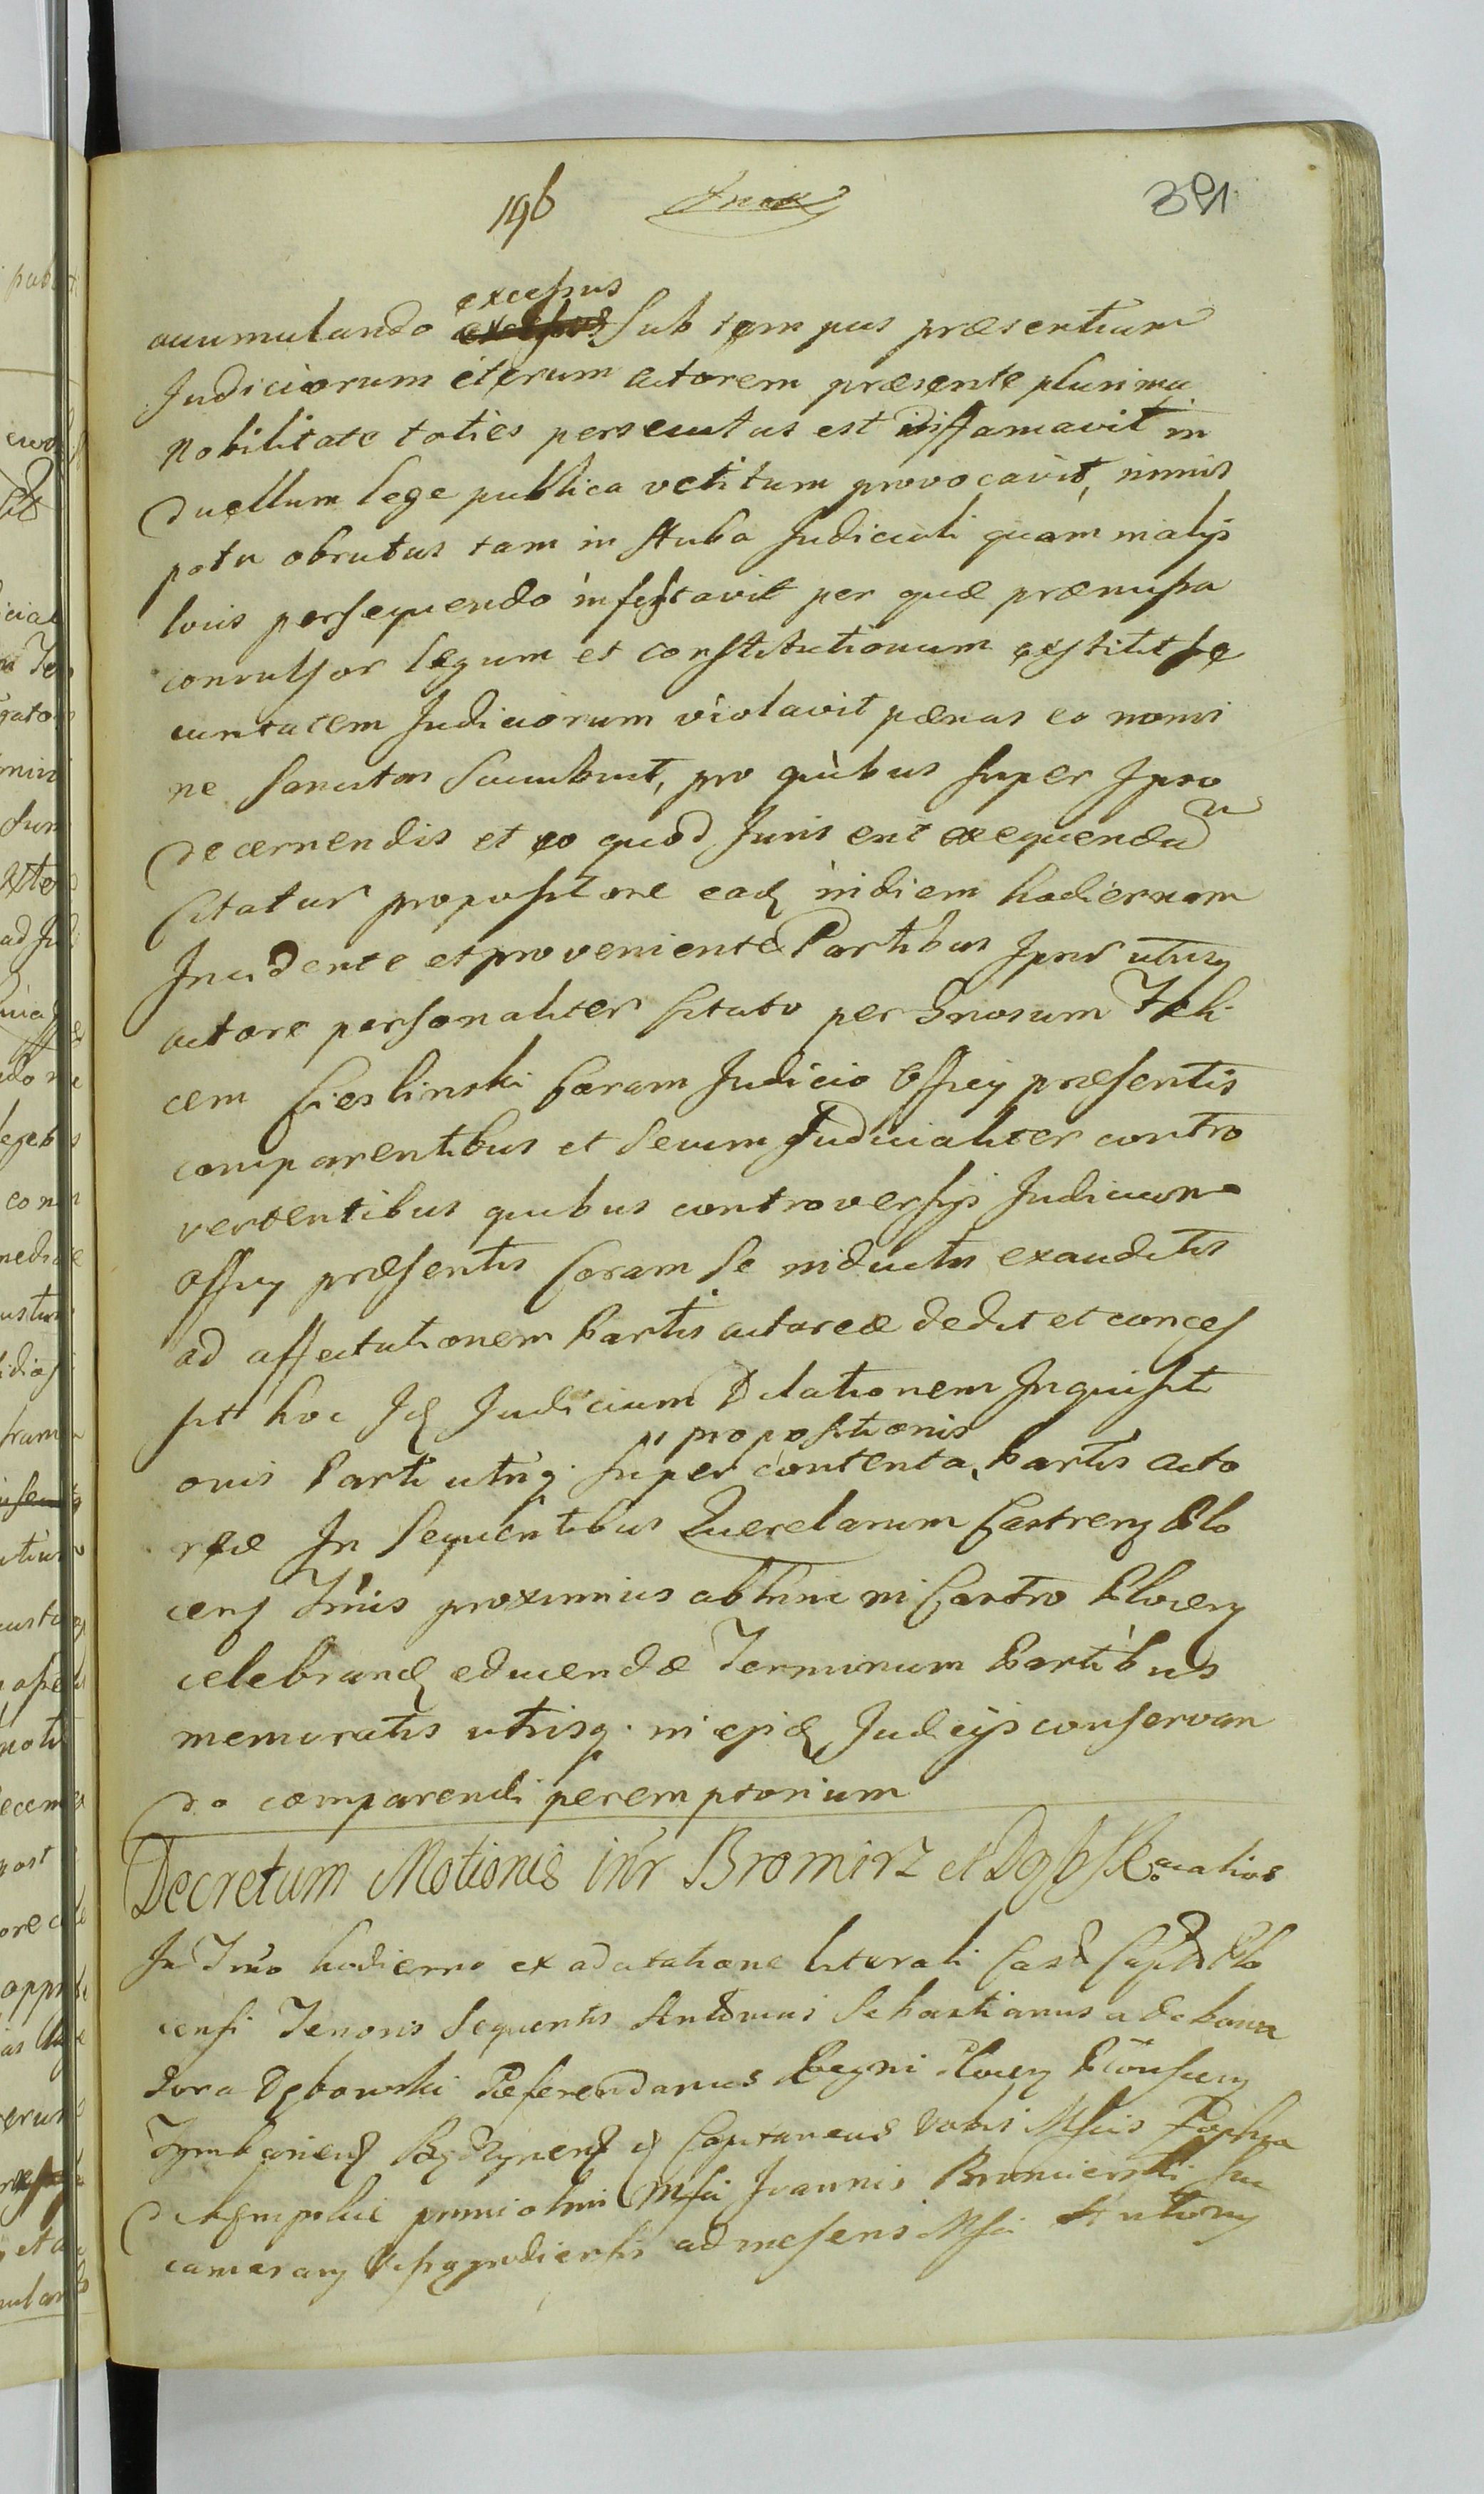 196 391
excessus
accumulando sub tempus præsentium
Judiciorum iterum actorem præsente plurima
Nobilitate toties persecutus est diffamavit in
duellum lege publica vetitum provocavit, nimis
potu obrutus tam in stuba Judiciali quam in alijs
locis persequendo infestavit per quæ præmissa
convulsor legum et constitutionum extitit se
curitatem Judiciorum violavit pænas eo nomi
ne sancitas succubuit, pro quibus super Ipso
decernendis et eo quod Juris erit exequendu
Citatur propositione eadq in diem hodiernam
Incidente et proveniente Partibus Ipsis utrisq
actore personaliter Citato per Gnosum Feli
cem Cieslinski Coram Judicio Officij præsentis
comparentibus et secum Judicialiter contro
vertentibus quibus controversijs Judicium
Officij præsentis Coram se inductis exauditis
ad affectationem Partis actoreæ dedit et conces
sit hoc Idq Judicium Dilationem Inquisiti
propositionis
onis Parti utriq. super contenta Partis acto
reæ In sequentibus Querelarum Castrens Plo
cens Trmis proximius abhinc in Castro Plocens
celebrandq educendæ Terminum Partibus
memoratis utrisq. in ejsdq Judicijs conservan
do comparendi peremptorium
Decretum Motionis intr Bromirz et Dąbsk alios
In Trmo hodierno ex adcitatione literali Cast Capt Plo
censi Tenoris sequentis Antonius Sebastianus a
Dąbowski Referendarius Regni Plocens
Capitaneus Vobis Mficis
primi olim Mfici Joannis Bromierski Suc
camerarij ad inhærens Mfici Antonij